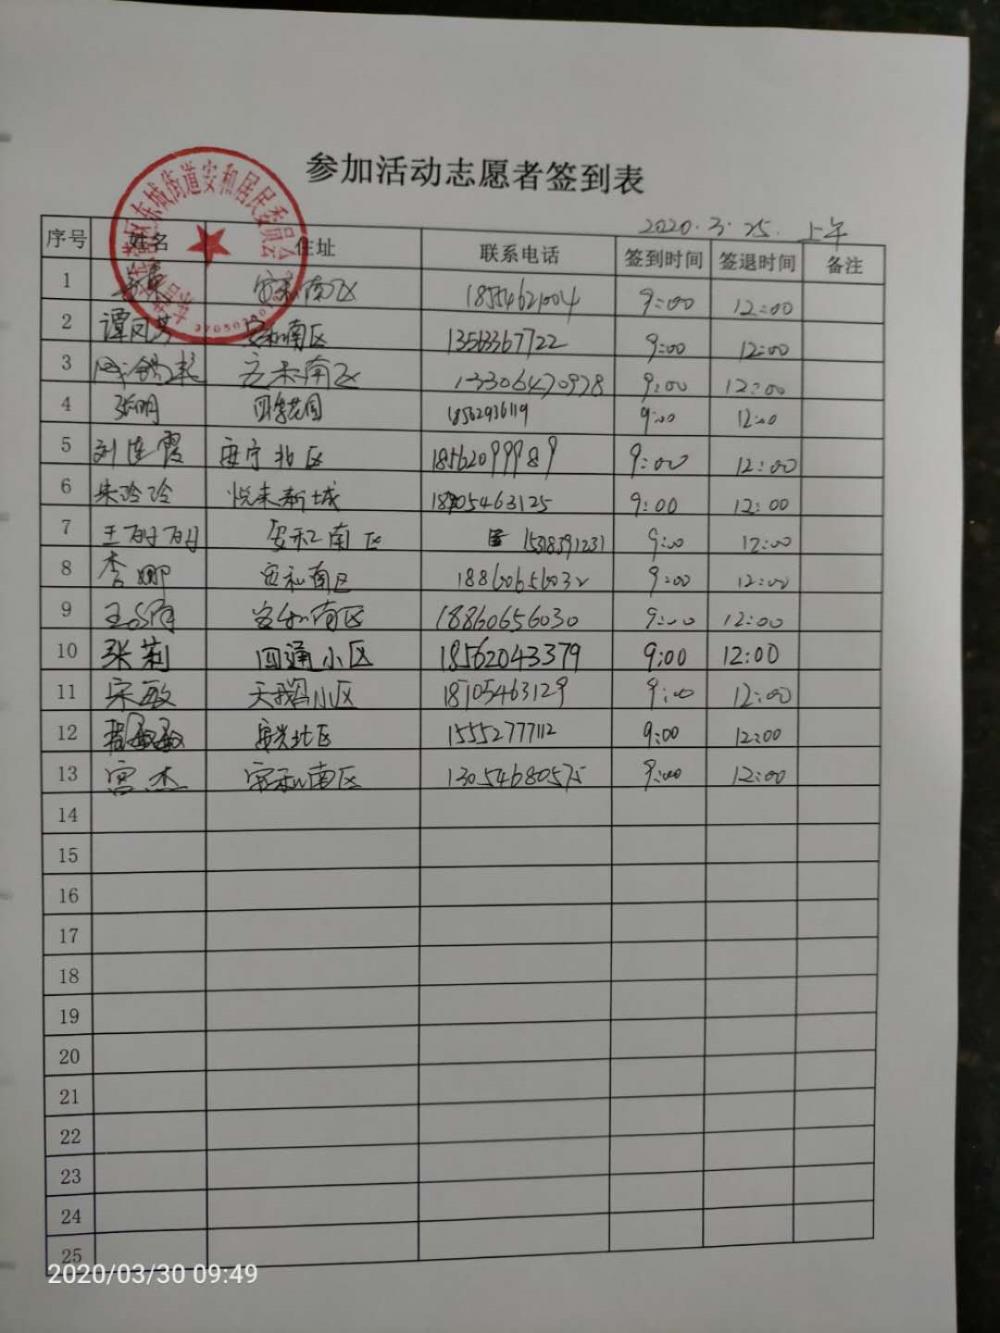 参加活动志愿者签到表
2020.3.25. 上午
序号 姓名 住址 联系电话 签到时间 签退时间 备注
东城街道安和居民委员会
1 安和南区 18554621004 9:00 12:00
2 谭凤 安和南区 13563367722 9:00 12:00
3 安和南区 13306470978 9:00 12:00
4 张明 四季花园 18562916119 9:00 12:00
5 刘连霞 安宁北区 18562099989 9:00 12:00
6 朱玲玲 悦来新城 18705463125 9:00 12:00
7 王 安和南区 15318391231 9:00 12:00
8 李娜 安和南区 18860656032 9:00 12:00
9 王 安和南区 18860656030 9:00 12:00
10 张莉 四通小区 18562043379 9:00 12:00
11 宋敏 天鹅小区 18705463129 9:00 12:00
12 安兴北区 15552777112 9:00 12:00
13 宫杰 安和南区 13054680575 9:00 12:00
14
15
16
17
18
19
20
21
22
23
24
25
2020/03/30 09:49